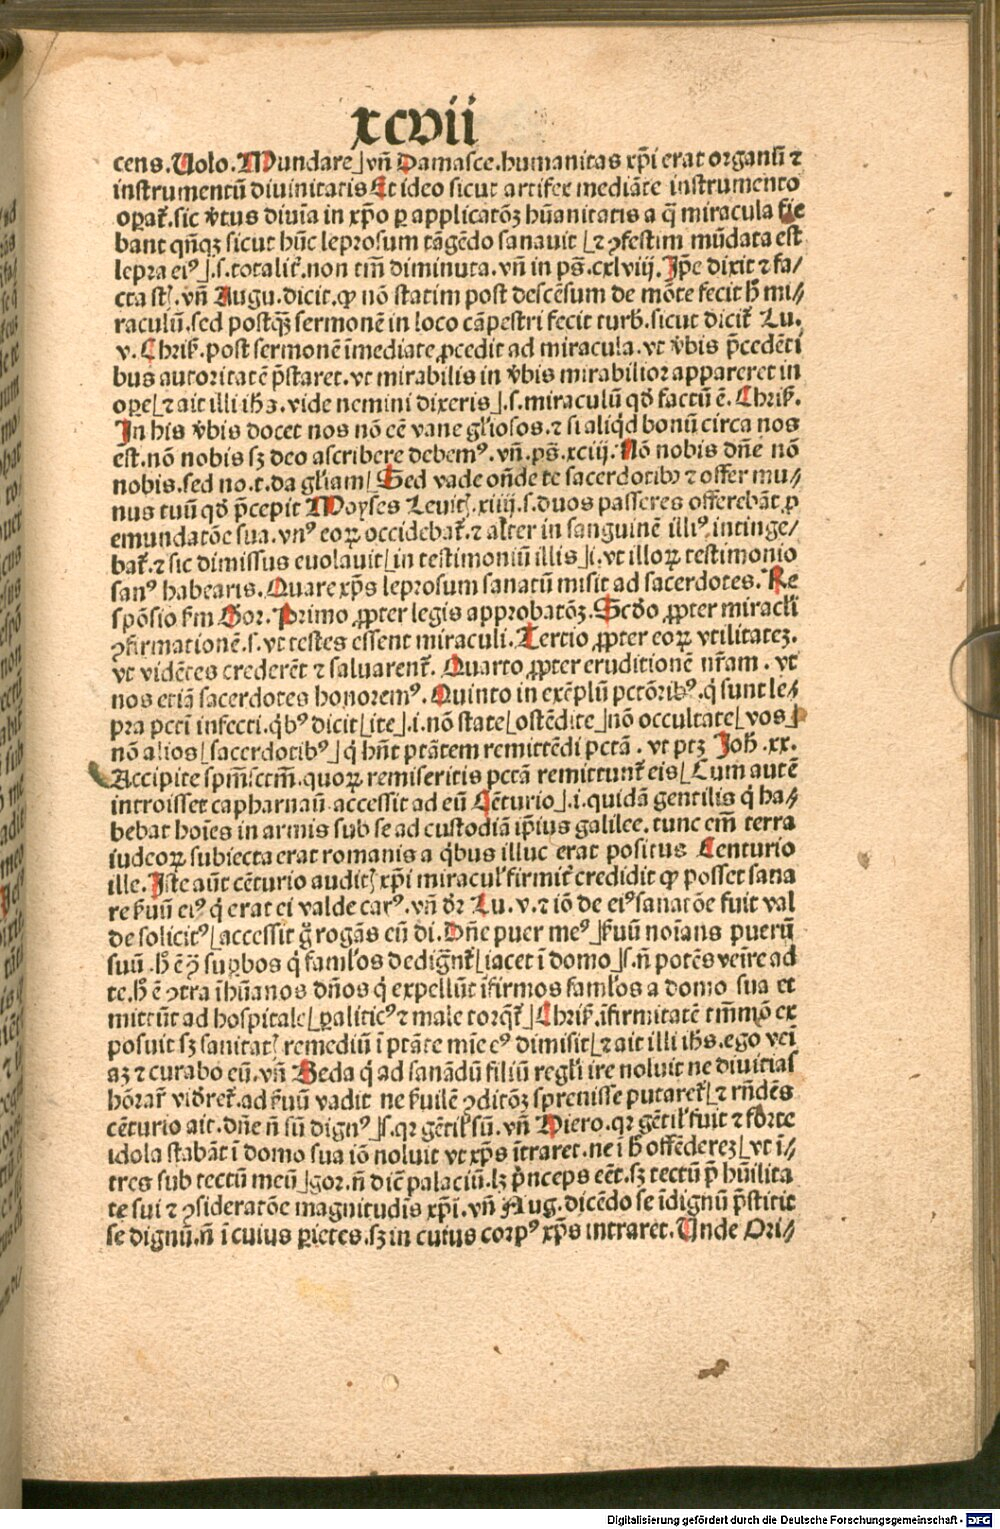 xcvii
cens. Uolo. Mundare⌋ vñ Damasce. humanitas xp̄i erat organū ⁊
instrumentū diuinitatis Et ideo sicut artifex mediāte instrumento
oꝑat᷑. sic v̓tus diuīa in xp̄o ꝑ applicatōꝫ hūanitatis a q̄ miracula fie
bant qn̄qꝫ sicut hūc leprosum tāgēdo sanauit ⌊⁊ ꝯfestim mūdata est
lepra eiꝰ⌋.s.totalit᷑.non tm̄ diminuta. vñ in ps̄. cxlviij. Ip̄e dixit ⁊ fa/
cta st̄. vñ Augu. dicit. ꝙ nō statim post descēsum de mōte fecit h̄ mi//
raculū. sed postqꝫ sermonē in loco cāpestri fecit turb̄. sicut dicit᷑ Lu.
v. Chriſ. post sermonē īmediate ꝓcedit ad miracula. vt v̓bis p̄cedēti
bus autoritatē p̄staret. vt mirabilis in v̓bis mirabilior appareret in
oꝑe⌊⁊ ait illi ih̄s. vide nemini dixeris⌋.s. miraculū qd̄ factū ē. Chriſ.
In his v̓bis docet nos nō eē vane gl̓iosos. ⁊ si aliq̓d bonū circa nos
est. nō nobis sꝫ deo ascribere debemꝰ. vñ. ps̄. xciij. Nō nobis dn̄e nō
nobis. sed no. t. da gl̓iam⌊ Sed vade on̄de te sacerdotibꝰ ⁊ offer mu//
nus tuū qd̄ p̄cepit Moyses Leuit̄. xiiij. s. duos passeres offerebāt ꝓ
emundatōe sua. vnꝰ eoꝝ occidebat᷑. ⁊ alter in sanguinē illiꝰ intinge/
bat᷑. ⁊ sic dimissus euolauit⌊in testimoniū illis⌋.i. vt illoꝝ testimonio
sanꝰ habearis. Quare xp̄s leprosum sanatū misit ad sacerdotes. Re
spōsio ẜm Gor. Primo ꝓpter legis approbatōꝫ. Scd̄o ꝓpter miracl̓i
ꝯfirmationē. s. vt testes essent miraculi. Tertio ꝓpter eoꝝ vtilitatez.
vt vidētes crederēt ⁊ saluarent᷑. Quarto ꝓpter eruditionē nr̄am. vt
nos etiā sacerdotes honoremꝰ. Quinto in exēplū pctōribꝰ. q̓ sunt le//
pra pcti infecti. q̓bꝰ dicit⌊ite⌋.i. nō state⌊ostēdite⌋nō occultate⌊vos⌋
nō alios⌊sacerdotibꝰ⌋q̓ hn̄t ptātem remittēdi pctā. vt ptꝫ Joh̄. xx.
Accipite spm̄.sctm̄. quoꝝ remiseritis pctā remittunt᷑ eis⌊Cum autē
introisset capharnaū accessit ad eū Cēturio⌋.i. quidā gentilis q̓ ha//
bebat hoīes in armis sub se ad custodiā ip̄ius galilee. tunc em̄ terra
iudeoꝝ subiecta erat romanis a q̓bus illuc erat positus Centurio
ille. Iste aūt cēturio audit̄ xp̄i miracul̓ firmit᷑ credidit ꝙ posset sana
re ẜuū eiꝰ q̓ erat ei valde carꝰ. vñ dr̄ Lu. v. ⁊ iō de eiꝰ sanatōe fuit val
de solicitꝰ⌊accessit g̊ rogās eū di. Dn̄e puer meꝰ⌋ẜuū noīans puerū
suū. h̄ ē ꝯ suꝑbos q̓ famlos dedignt᷑⌊iacet ī domo⌋.s. n̄ potēs veīre ad
te. h̄ ē ꝯtra īhūanos dn̄os q̓ expellūt īfirmos famlos a domo sua et
mittūt ad hospitale⌊ꝑaliticꝰ ⁊ male torq̄t᷑⌋Chriſ. īfirmitatē tm̄mō ex
posuit sꝫ sanitat̄ remediū ī ptāte mie eꝰ dimisit⌊⁊ ait illi ih̄s. ego vei
aꝫ ⁊ curabo eū. vñ Beda q̓ ad sanādū filiū regl̓i ire noluit ne diuitias
hōrar᷑ vid̓ret᷑. ad ẜuū vadit ne ẜuilē ꝯditōꝫ spreuisse putaret᷑⌊⁊ rn̄dēs
cēturio ait. dn̄e n̄ sū dignꝰ⌋.s. qꝛ gētil̓ sū. vñ Piero. qꝛ gētil̓ fuit ⁊ forte
idola stabāt ī domo sua iō noluit vt xp̄s ītraret. ne ī h̄ offēderez⌊vt ī//
tres sub tectū meū⌋gor. n̄ dic̄ palaciū. lꝫ p̓nceps eēt. sꝫ tectū p̄ hūilita
te sui ⁊ ꝯsideratōe magnitudis xp̄i. vñ Aug. dicēdo se īdignū p̄stitit
se dignū. n̄ ī cuius ꝑietes. sꝫ in cuius corpꝰ xp̄s intraret. Unde Ori//
Digitalisierung gefördert durch die Deutsche Forschungsgemeinschaft - DFG